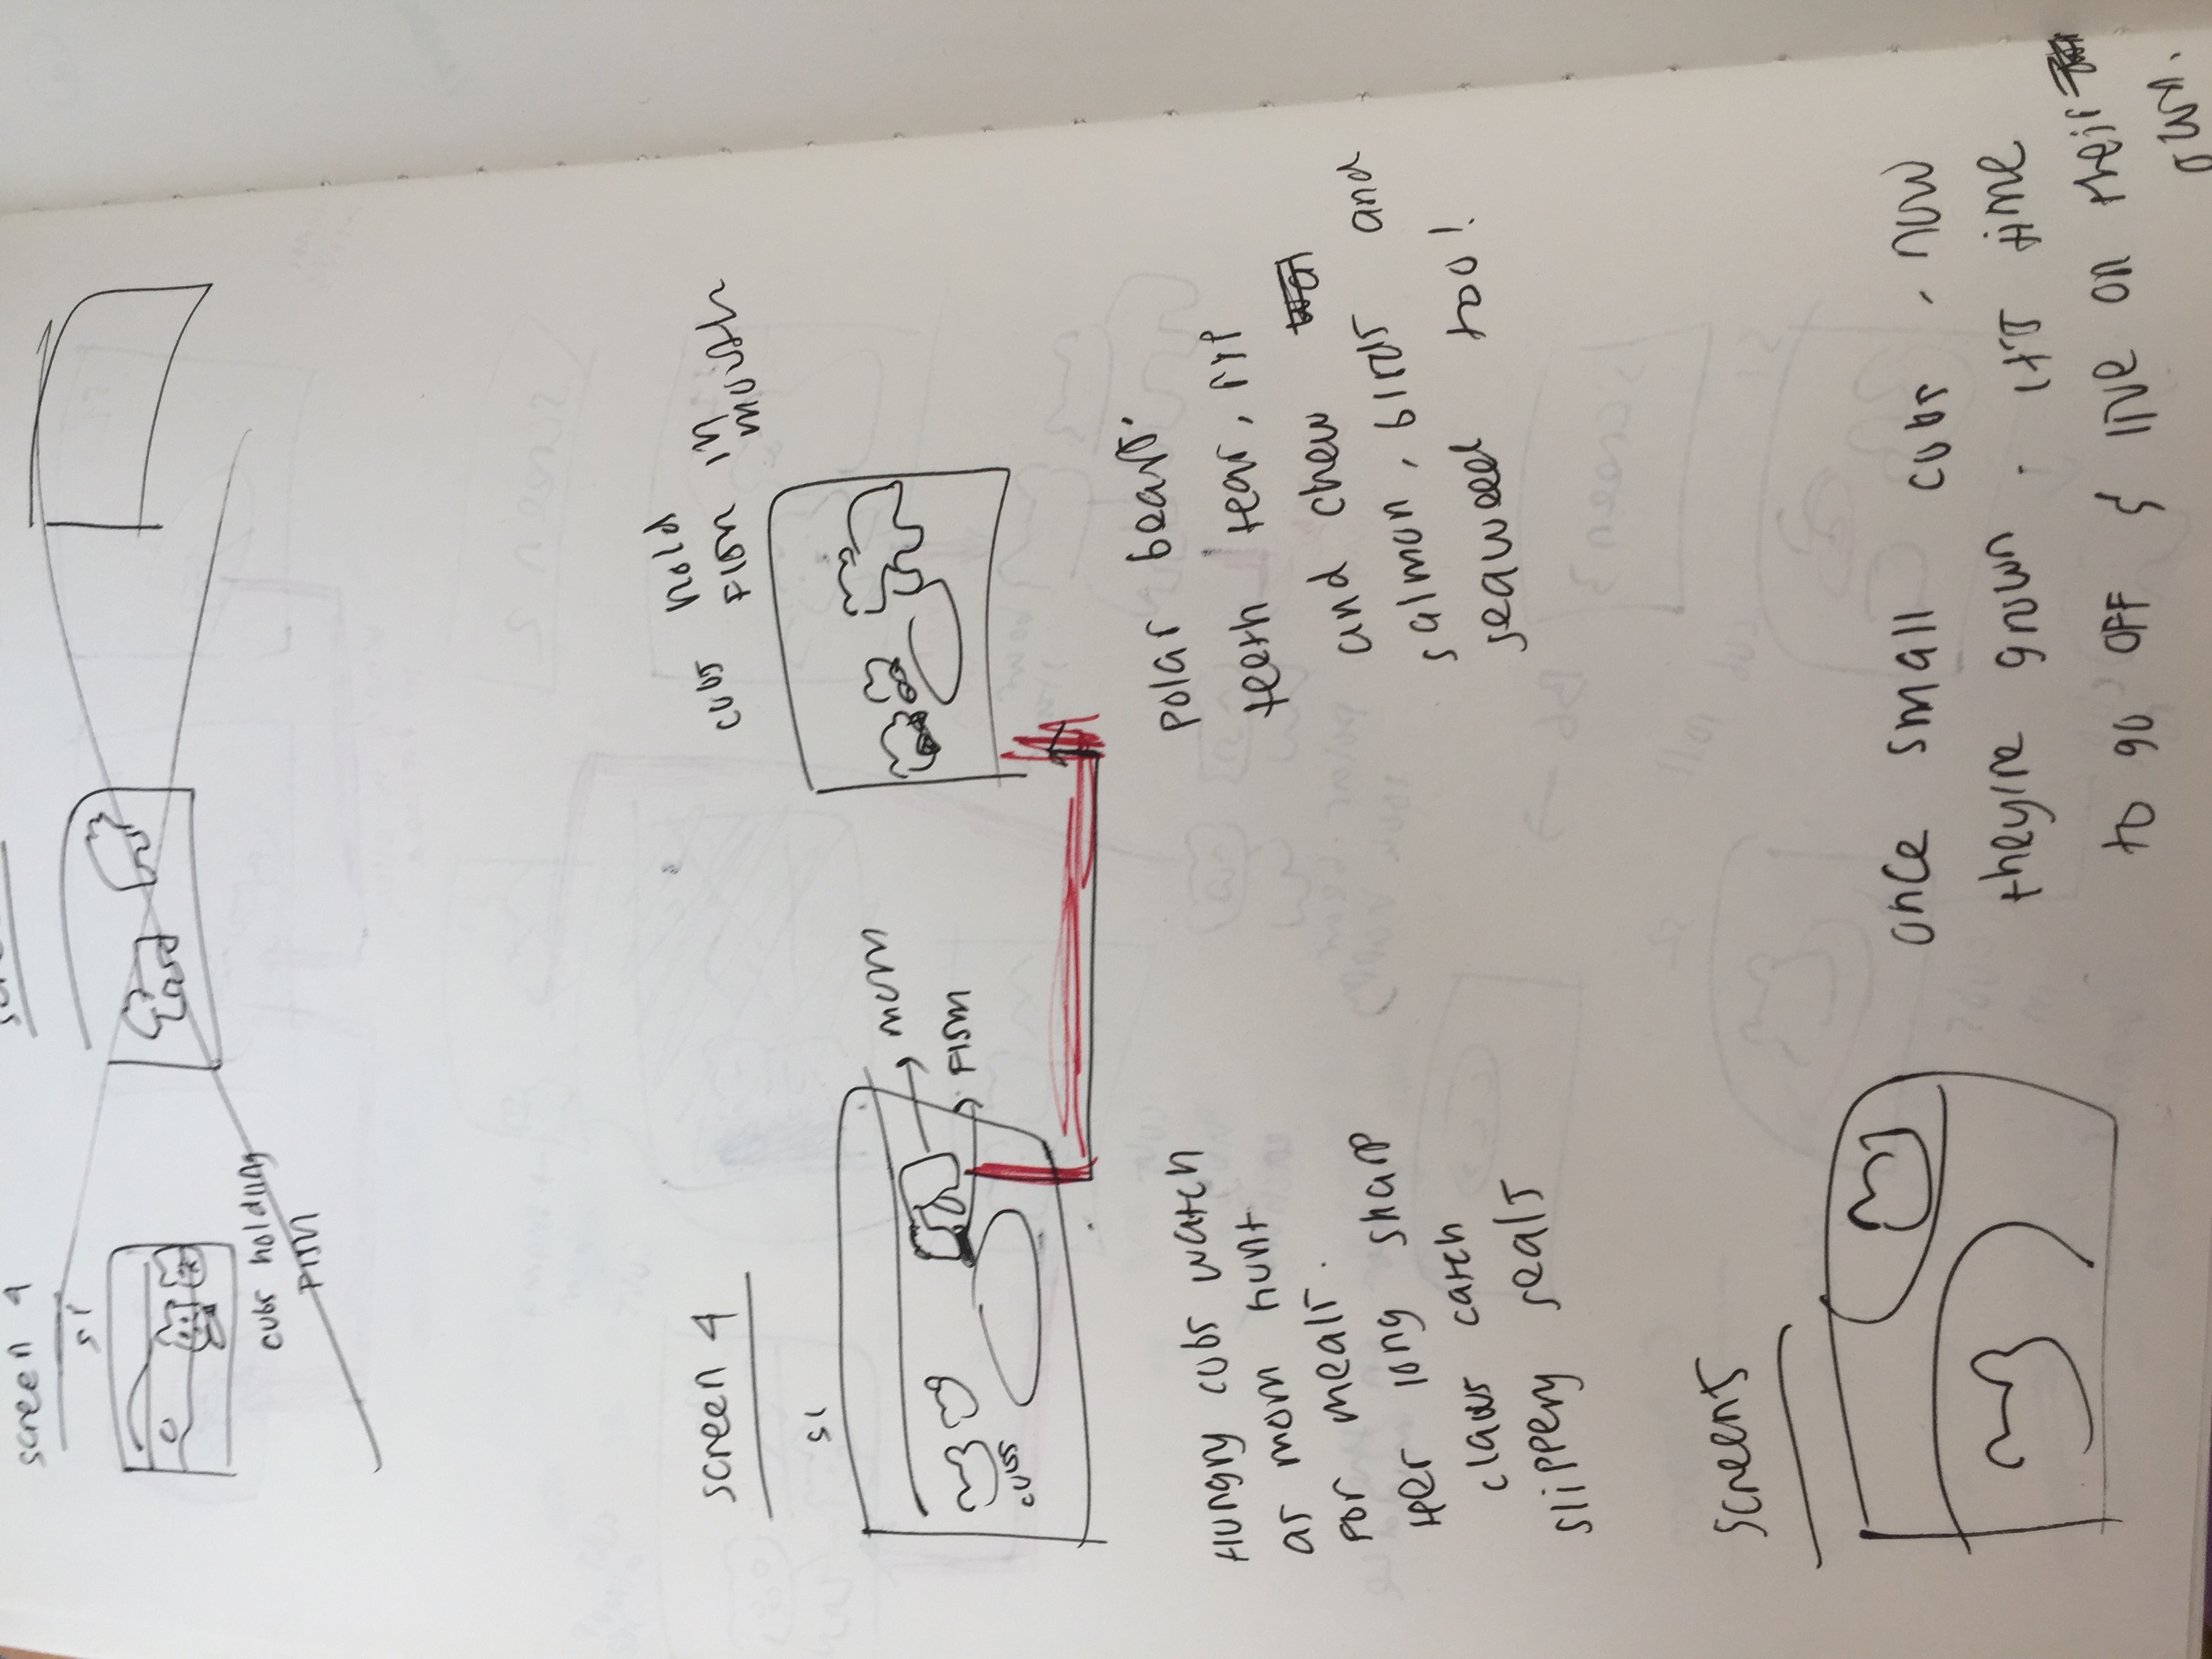 screen 4
S1
cubs holding
fish
screen 4
S1
cubs hold
fish in
mouth
mom
fish
cubs
Hungry cubs watch
as mom hunt
for meals.
Her long sharp
claws catch
slippery seals
polar bears
teeth tear, rip
and chew
salmon, birds and
seaweed too!
screen5
once small cubs, now
they're grown. it's time
to go off & live on their
own.